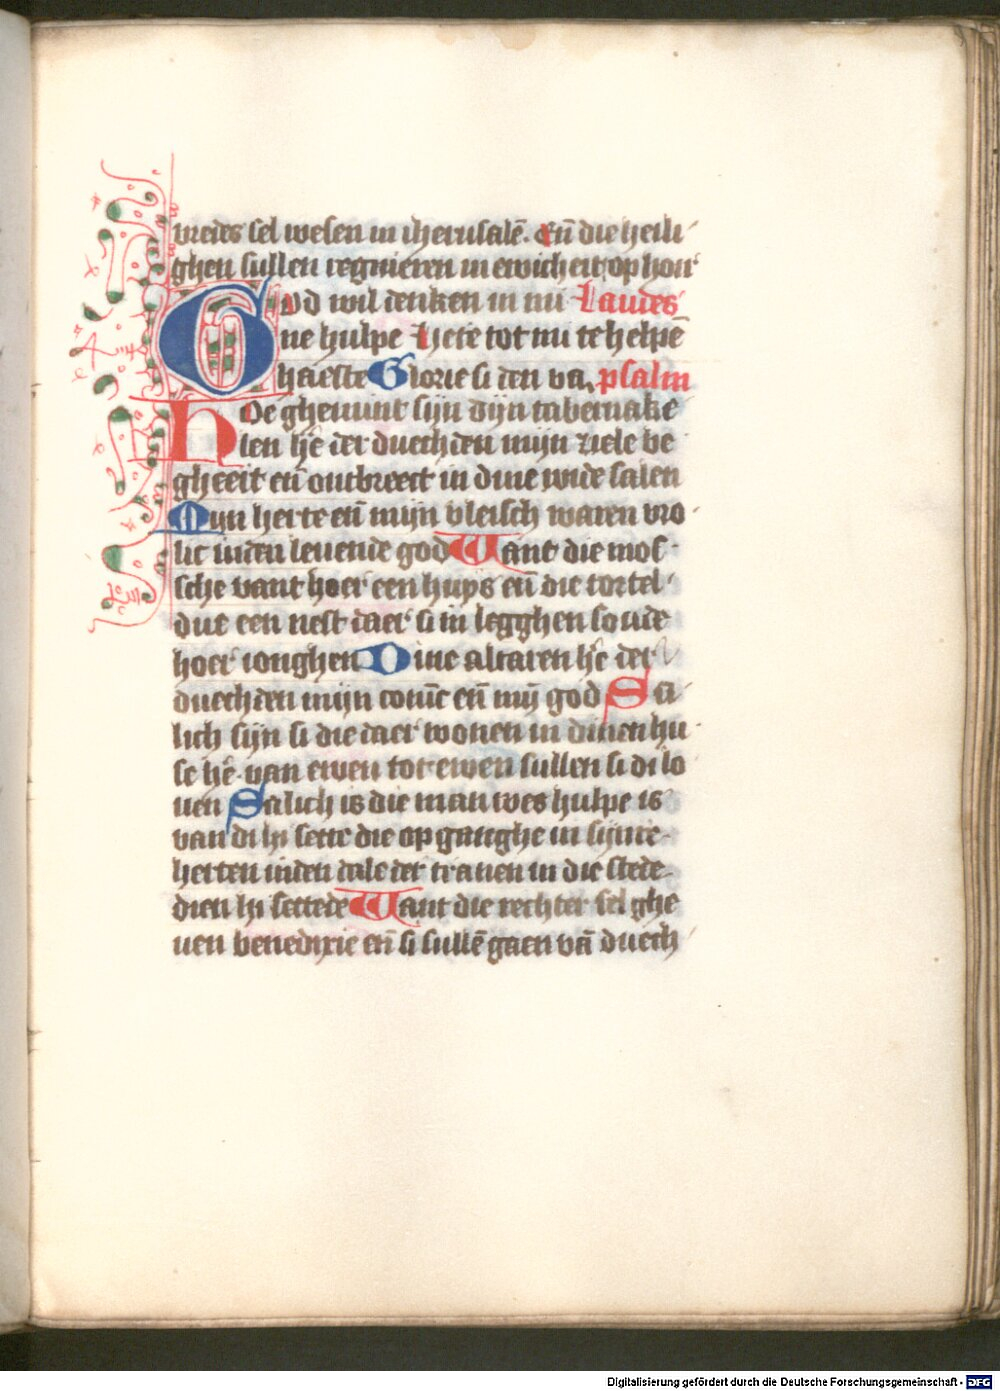 vredes sel wesen in iherusalē. Eñ die heili
ghen sullen regnieren in ewicheit op hoir
God wil denken in mi Laudes
ne hulpe Here tot mi te helpē
haeste Glorie si den va. psalm
Hoe ghemint sijn dijn tabernake
len hēe der duechden mijn ziele be
gheeit eñ ontbreect in dine vride salen
Mijn herte eñ mijn vleisch waren vro
lic inden leuende god Want die mos
sche vant hoer een huys eñ die tortel
due een nest daer si in legghen soude
hoer ionghen Dine altaren hēe der
duechden mijn coninc eñ mij god Sa
lich sijn si die daer wonen in dinen hu
se hēe van ewen tot ewen sullen si di lo
uen Salich is die man wes hulpe is
van di hi sette die op ganghe in sijnre
herten inden dale der tranen in die stede
dien hi settede Want die rechter sel ghe
uen benedixie eñ si sullē gaen vā duech
Digitalisierung gefördert durch die Deutsche Forschungsgemeinschaft - DFG